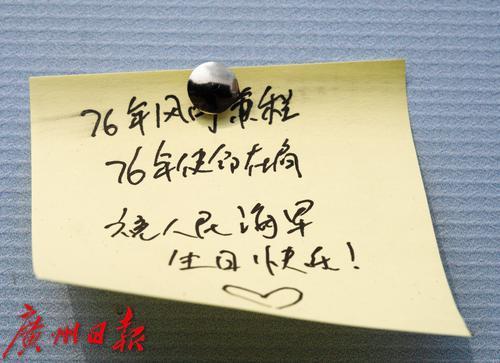 76年风雨兼程
76年使命在肩
祝人民海军
生日快乐!
廣州日報